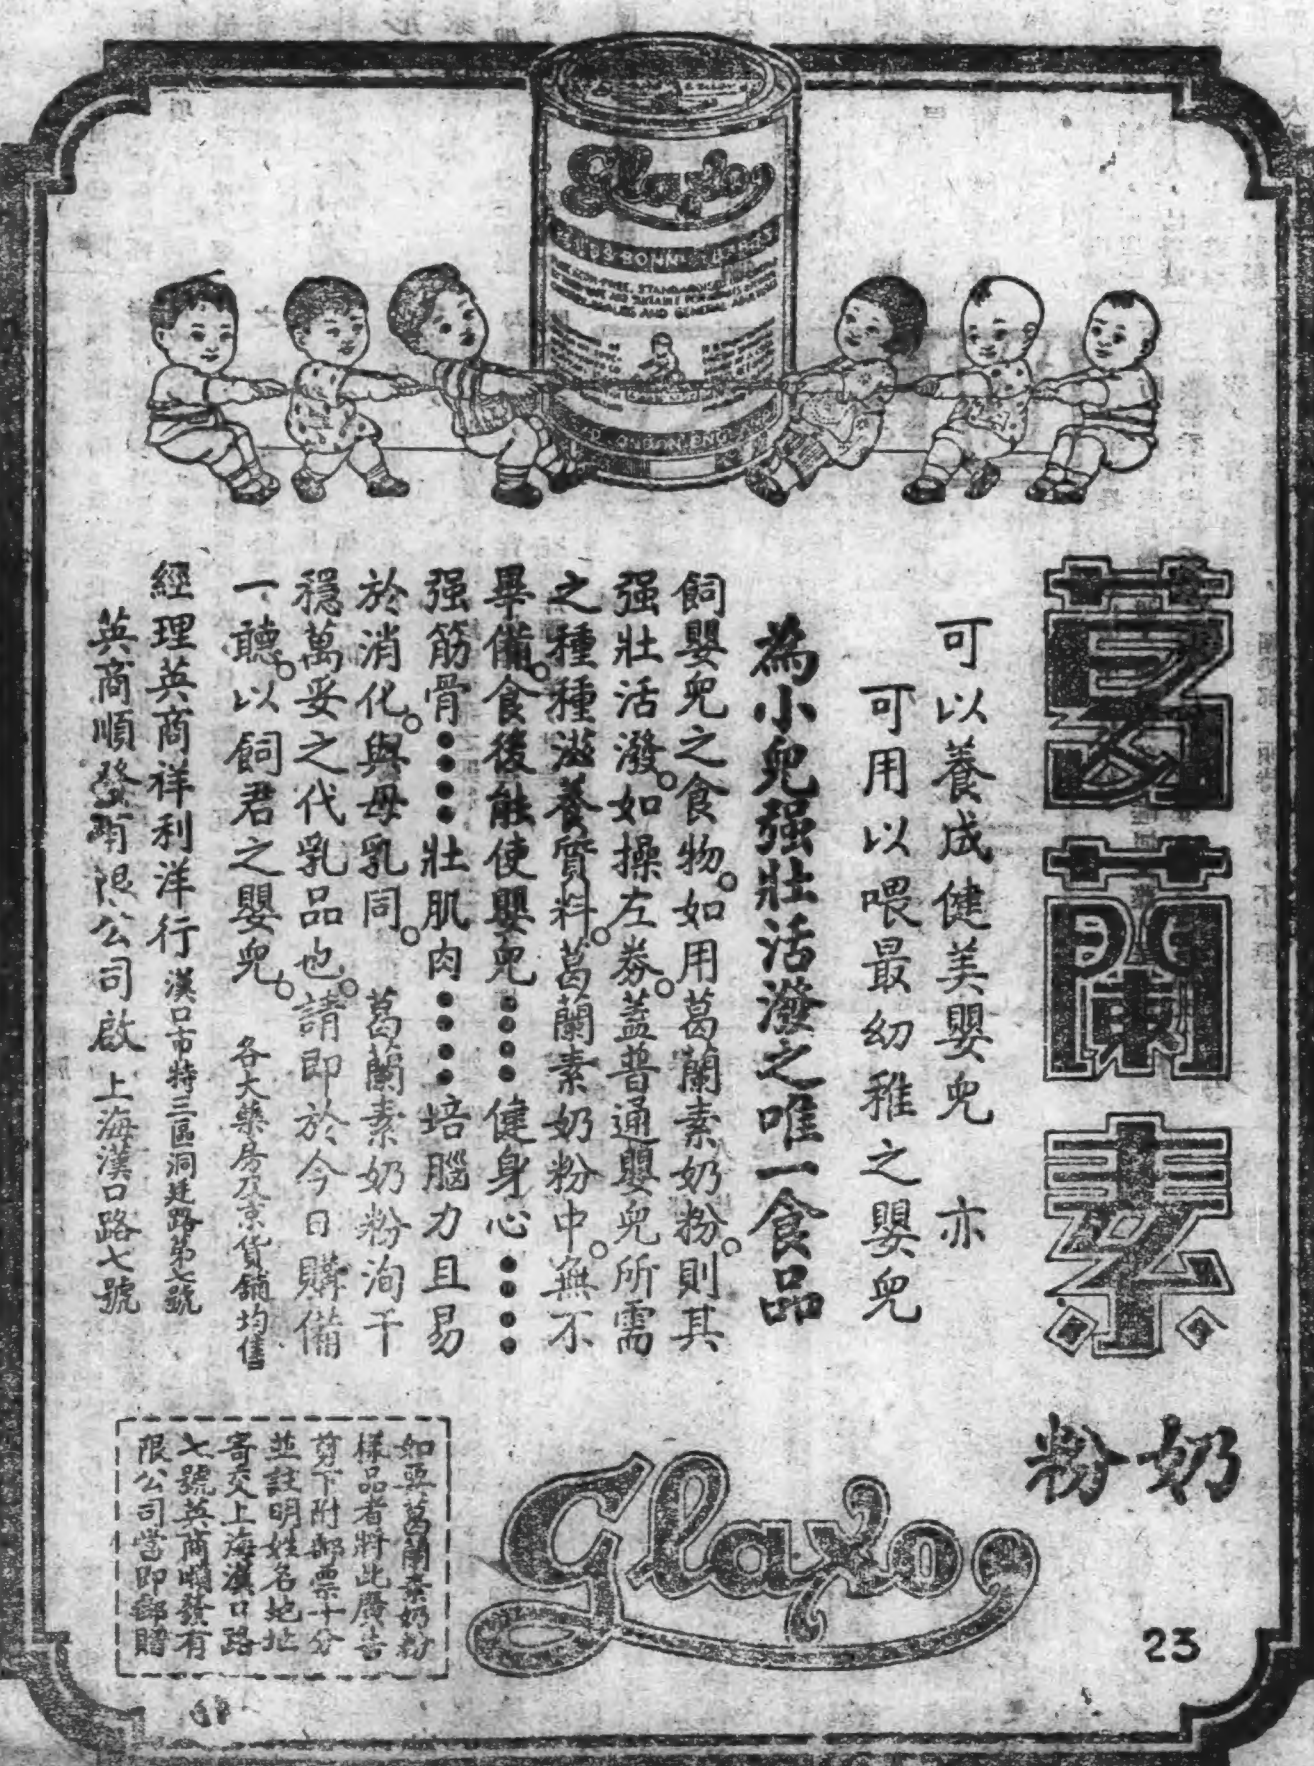 葛蘭素
奶粉
可以養成健美嬰兒 亦
可用以喂最幼稚之嬰兒
為小兒强壯活潑之唯一食品
飼嬰兒之食物。如用葛蘭素奶粉。則其
强壯活潑。如操左券。蓋普通嬰兒所需
之種種滋養質料。葛蘭素奶粉中。無不
畢備。食後能使嬰兒●●●●健身心●●●●
强筋骨●●●●壯肌肉●●●●培腦力且易
於消化。與母乳同。葛蘭素奶粉洵千
穩萬妥之代乳品也。請即於今日購備
一聽。以飼君之嬰兒。 各大藥房及京貨舖均售
經理英商祥利洋行 漢口市特三區洞廷路第七號
英商順發有限公司啟 上海漢口路七號
如要葛蘭素奶粉
樣品者將此廣告
剪下附郵票十分
並註明姓名地址
寄交上海漢口路
七號英商順發有
限公司當即郵贈
Glaxo
Glaxo
LONDON, ENGLAND
23